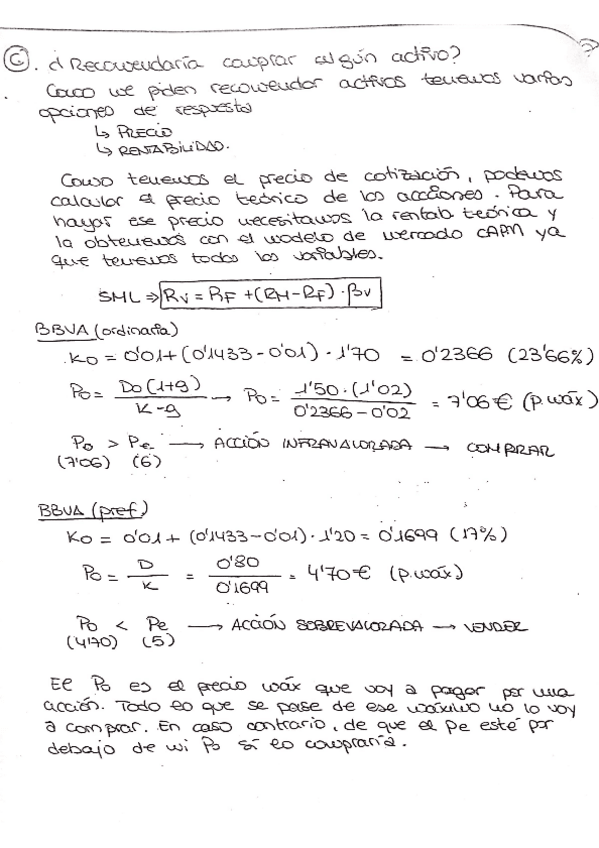 C. ¿Recomendaría comprar algún activo?
Como me piden recomendar activos tenemos varias
opciones de respuesta
↳ PRECIO
↳ RENTABILIDAD.
Como tenemos el precio de cotización, podemos
calcular el precio teórico de las acciones. Para
hayar ese precio necesitamos la rentab teórica y
la obtenemos con el modelo de mercado CAPM ya
que tenemos todas las variables.
SML ⇒ Rv = RF + (RM - RF) · βv
BBVA (ordinaria)
Ko = 0'01 + (0'1433 - 0'01) · 1'70 = 0'2366 (23'66%)
Po = Do(1+g) / K-g → Po = 1'50 · (1'02) / 0'2366 - 0'02 = 7'06€ (p. máx)
Po > Pe → ACCIÓN INFRAVALORADA → COMPRAR
(7'06) (6)
BBVA (pref)
Ko = 0'01 + (0'1433 - 0'01) · 1'20 = 0'1699 (17%)
Po = D / K = 0'80 / 0'1699 = 4'70€ (p. máx)
Po < Pe → ACCIÓN SOBREVALORADA → VENDER
(4'70) (5)
El Po es el precio máx que voy a pagar por una
acción. Todo lo que se pase de ese máximo no lo voy
a comprar. En caso contrario, de que el Pe esté por
debajo de mi Po sí lo compraría.